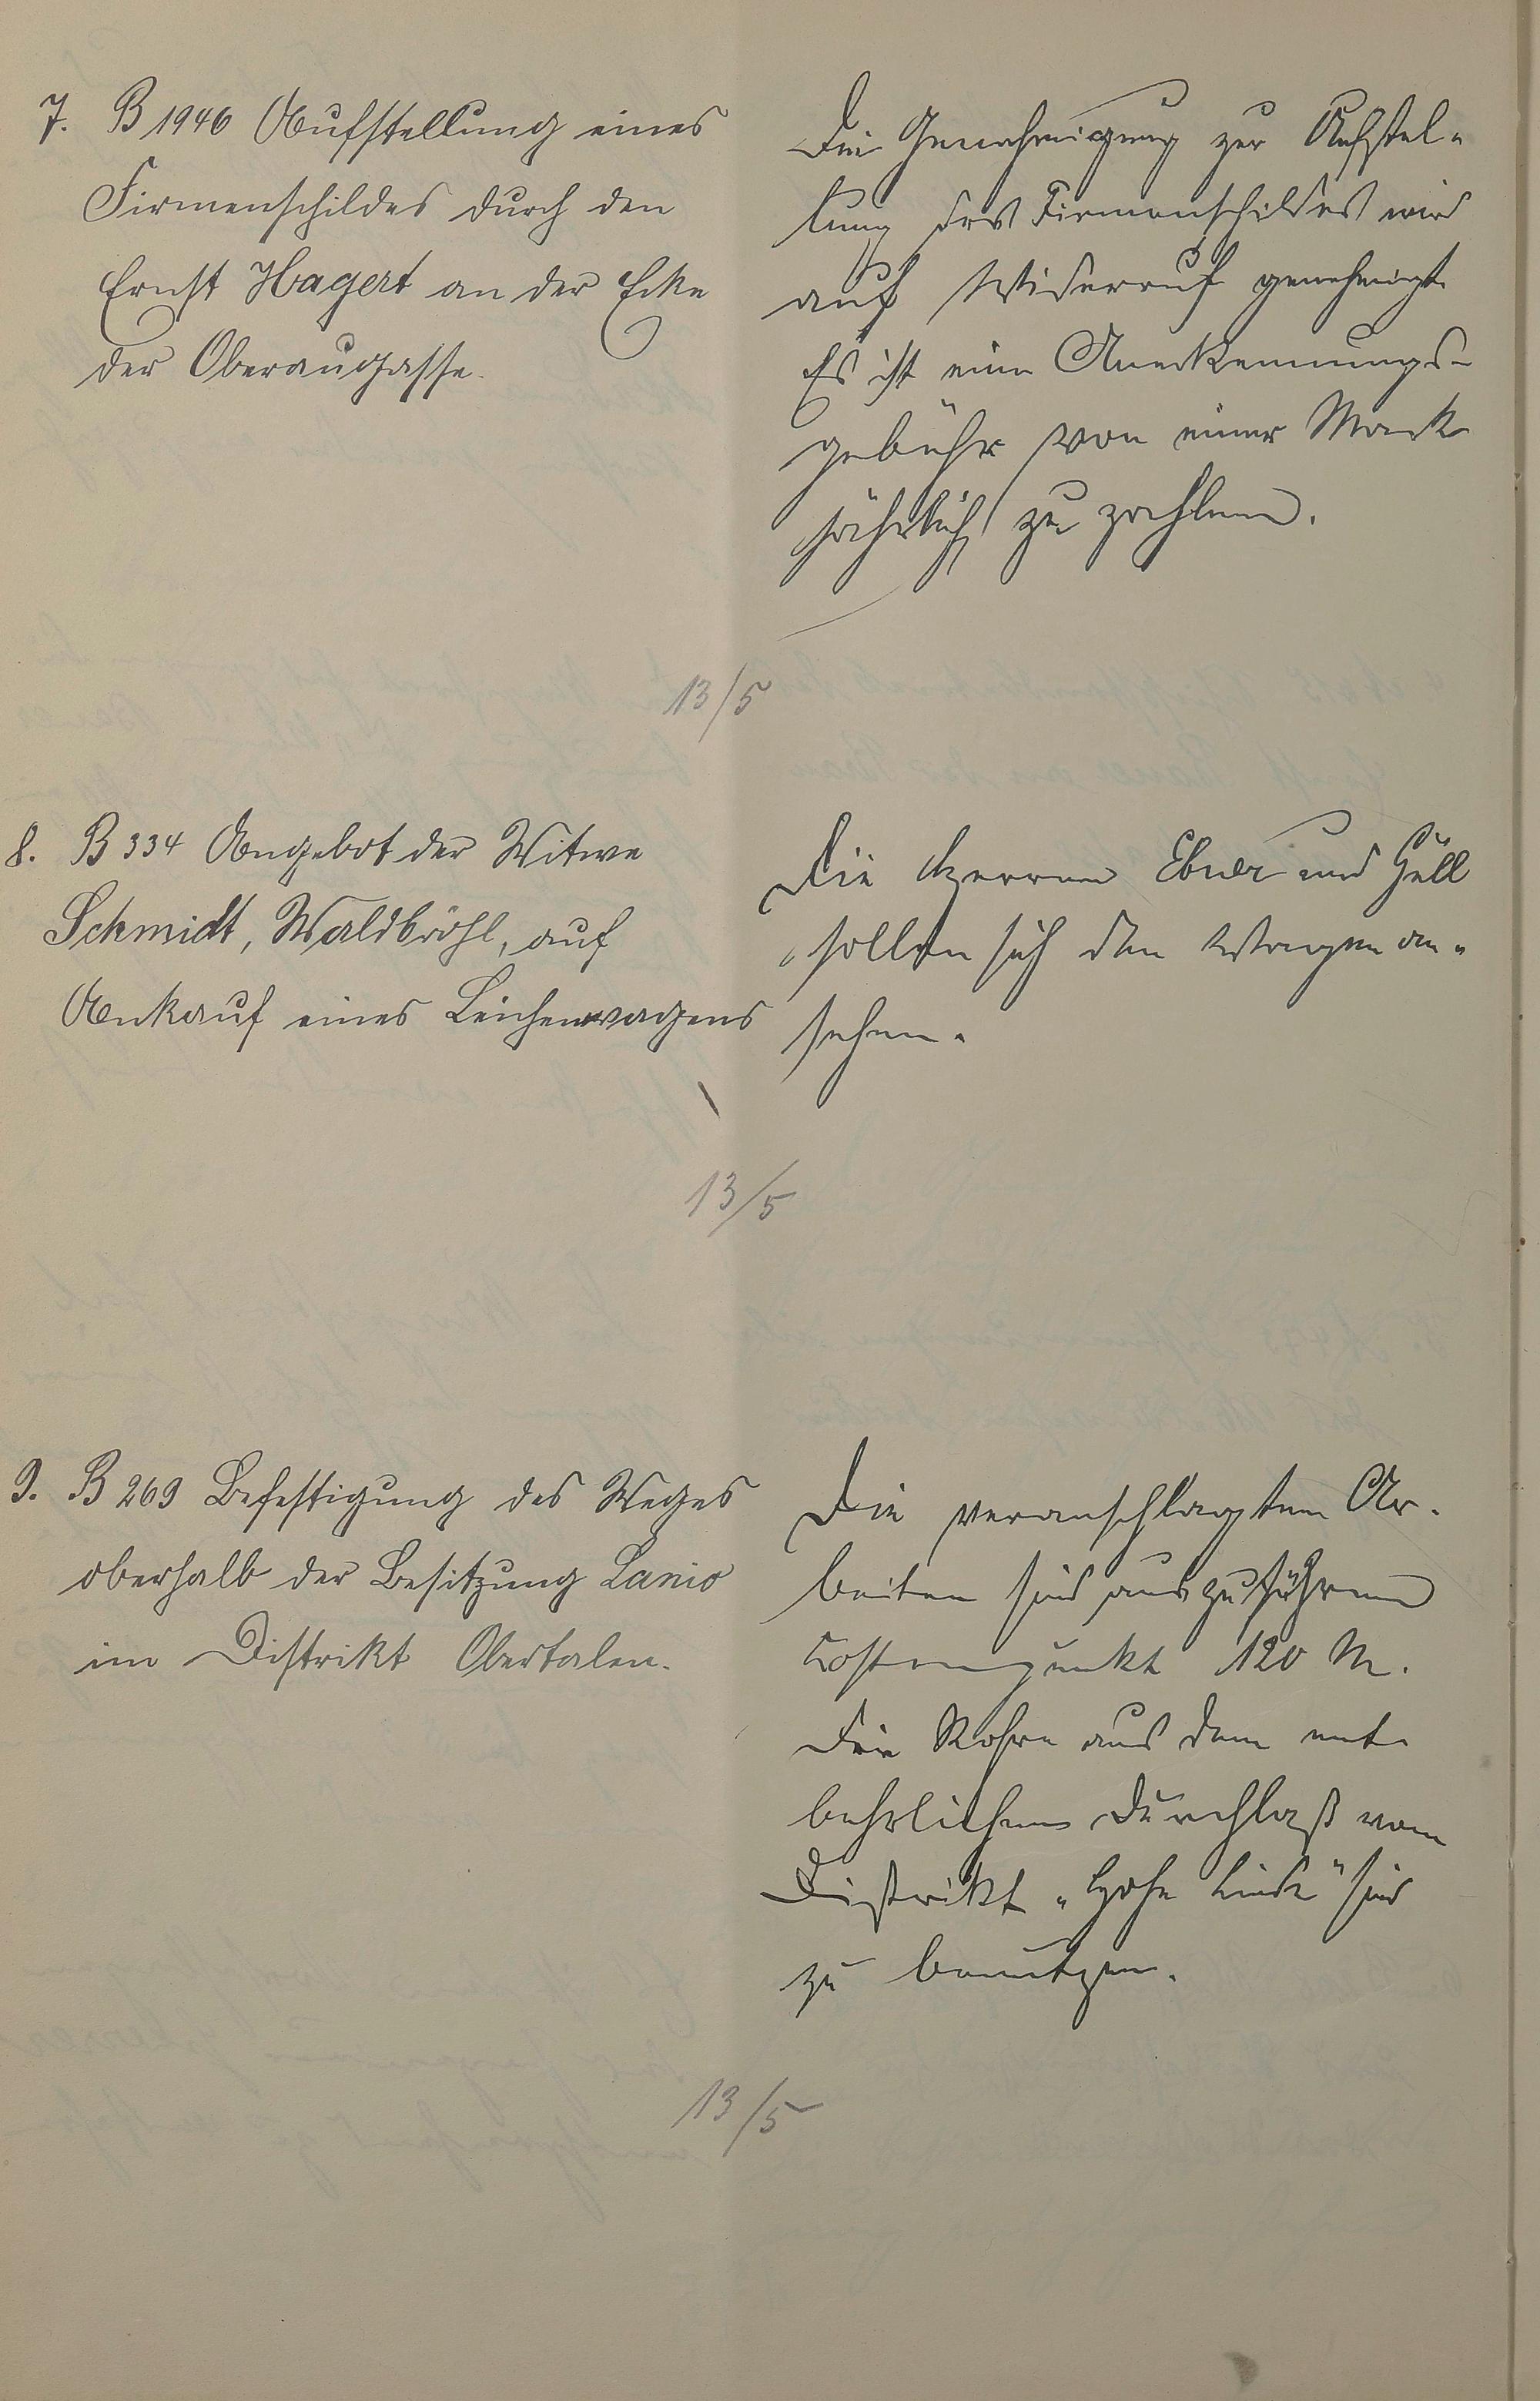 7. B 1946 Aufstellung eines
Firmenschildes durch den
Ernst Hagert an der Ecke
der Oberaugasse.
Die Genehmigung zur Aufstel-
lung des Firmenschildes wird
auf Widerruf genehmigt
Es ist eine Anerkennungs-
gebühr von einer Mark
jährlich zu zahlen.
13/5
8. B 334 Angebot der Witwe
Schmidt, Waldbröhl, auf
Ankauf eines Leichenwagens
Die Herren Ebner und Güll
sollen sich den Wagen an-
sehen.
13/5
9. B 269 Befestigung des Weges
oberhalb der Besitzung Lanio
im Distrikt Obertalen.
Die veranschlagten Ar-
beiten sind auszuführen
Kostenpunkt 120 M.
Die Rohre aus dem ent-
behrlichen Durchlaß vom
Distrikt "Hohe Linde" sind
zu benutzen.
13/5